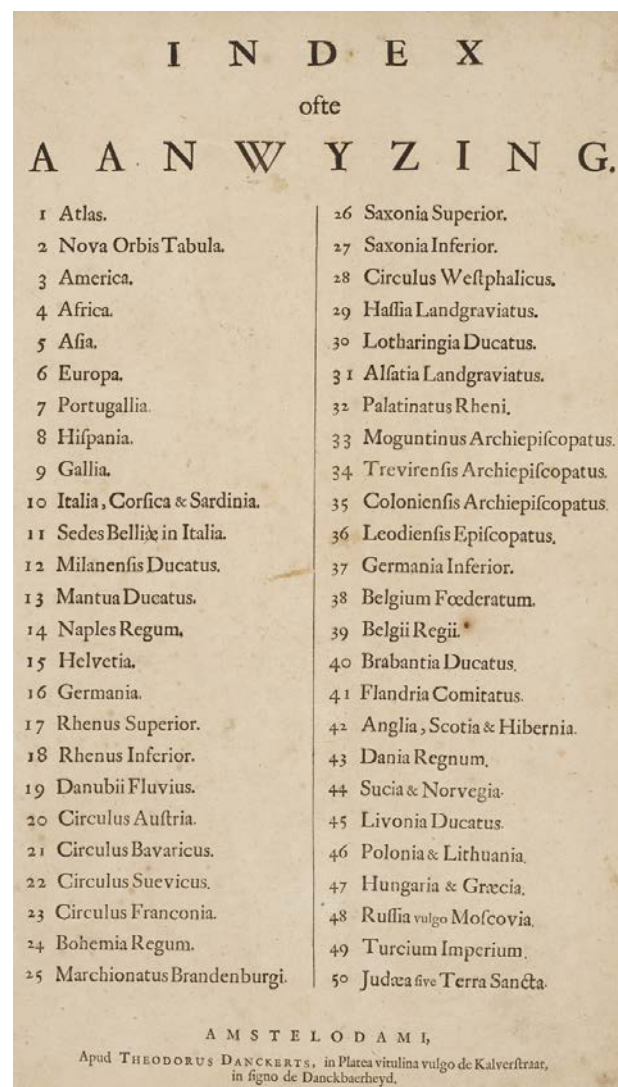 INDEX
ofte
AANWYZING.
1 Atlas.
2 Nova Orbis Tabula.
3 America.
4 Africa.
5 Aſia.
6 Europa.
7 Portugallia.
8 Hiſpania.
9 Gallia.
10 Italia, Corſica & Sardinia.
11 Sedes Belli in Italia.
12 Milanenſis Ducatus.
13 Mantua Ducatus.
14 Naples Regum.
15 Helvetia.
16 Germania.
17 Rhenus Superior.
18 Rhenus Inferior.
19 Danubii Fluvius.
20 Circulus Auſtria.
21 Circulus Bavaricus.
22 Circulus Suevicus.
23 Circulus Franconia.
24 Bohemia Regum.
25 Marchionatus Brandenburgi.
26 Saxonia Superior.
27 Saxonia Inferior.
28 Circulus Weſtphalicus.
29 Haſſia Landgraviatus.
30 Lotharingia Ducatus.
31 Alſatia Landgraviatus.
32 Palatinatus Rheni.
33 Moguntinus Archiepiſcopatus.
34 Trevirenſis Archiepiſcopatus.
35 Colonienſis Archiepiſcopatus.
36 Leodienſis Epiſcopatus.
37 Germania Inferior.
38 Belgium Fœderatum.
39 Belgii Regii.
40 Brabantia Ducatus.
41 Flandria Comitatus.
42 Anglia, Scotia & Hibernia.
43 Dania Regnum.
44 Sucia & Norvegia.
45 Livonia Ducatus.
46 Polonia & Lithuania.
47 Hungaria & Græcia.
48 Ruſſia vulgo Moſcovia.
49 Turcium Imperium.
50 Judæa ſive Terra Sancta.
AMSTELODAMI,
Apud THEODORUS DANCKERTS, in Platea vitulina vulgo de Kalverſtraat,
in ſigno de Danckbaerheyd.